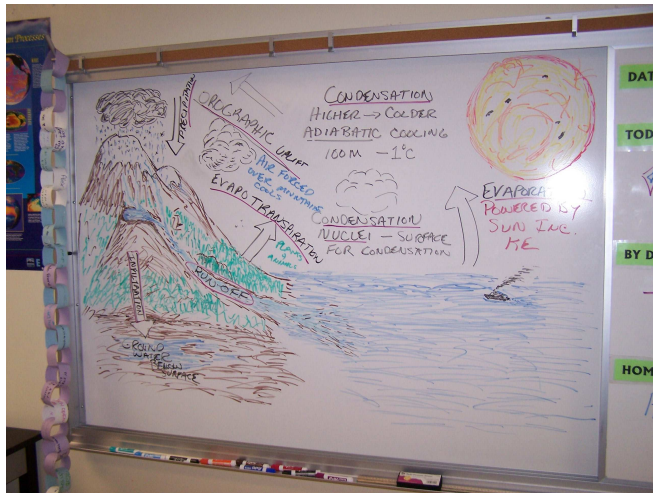 PRECIPITATION
OROGRAPHIC UPLIFT
AIR FORCED
OVER MOUNTAINS
COOLS
EVAPO TRANSPIRATION
PLANTS
+
ANIMALS
CONDENSATION
HIGHER → COLDER
ADIABATIC COOLING
100M — 1°C
CONDENSATION
NUCLEI — SURFACE
FOR CONDENSATION
EVAPORA
POWERED BY
SUN INC.
KE
RUN-OFF
GROUND
WATER
BELOW
SURFACE
DAT
TOD
BY D
HOM